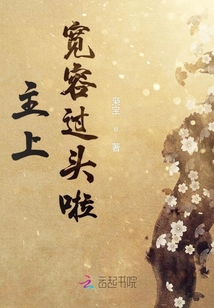 主上
宽容过头啦
枭宝。著
云起书院